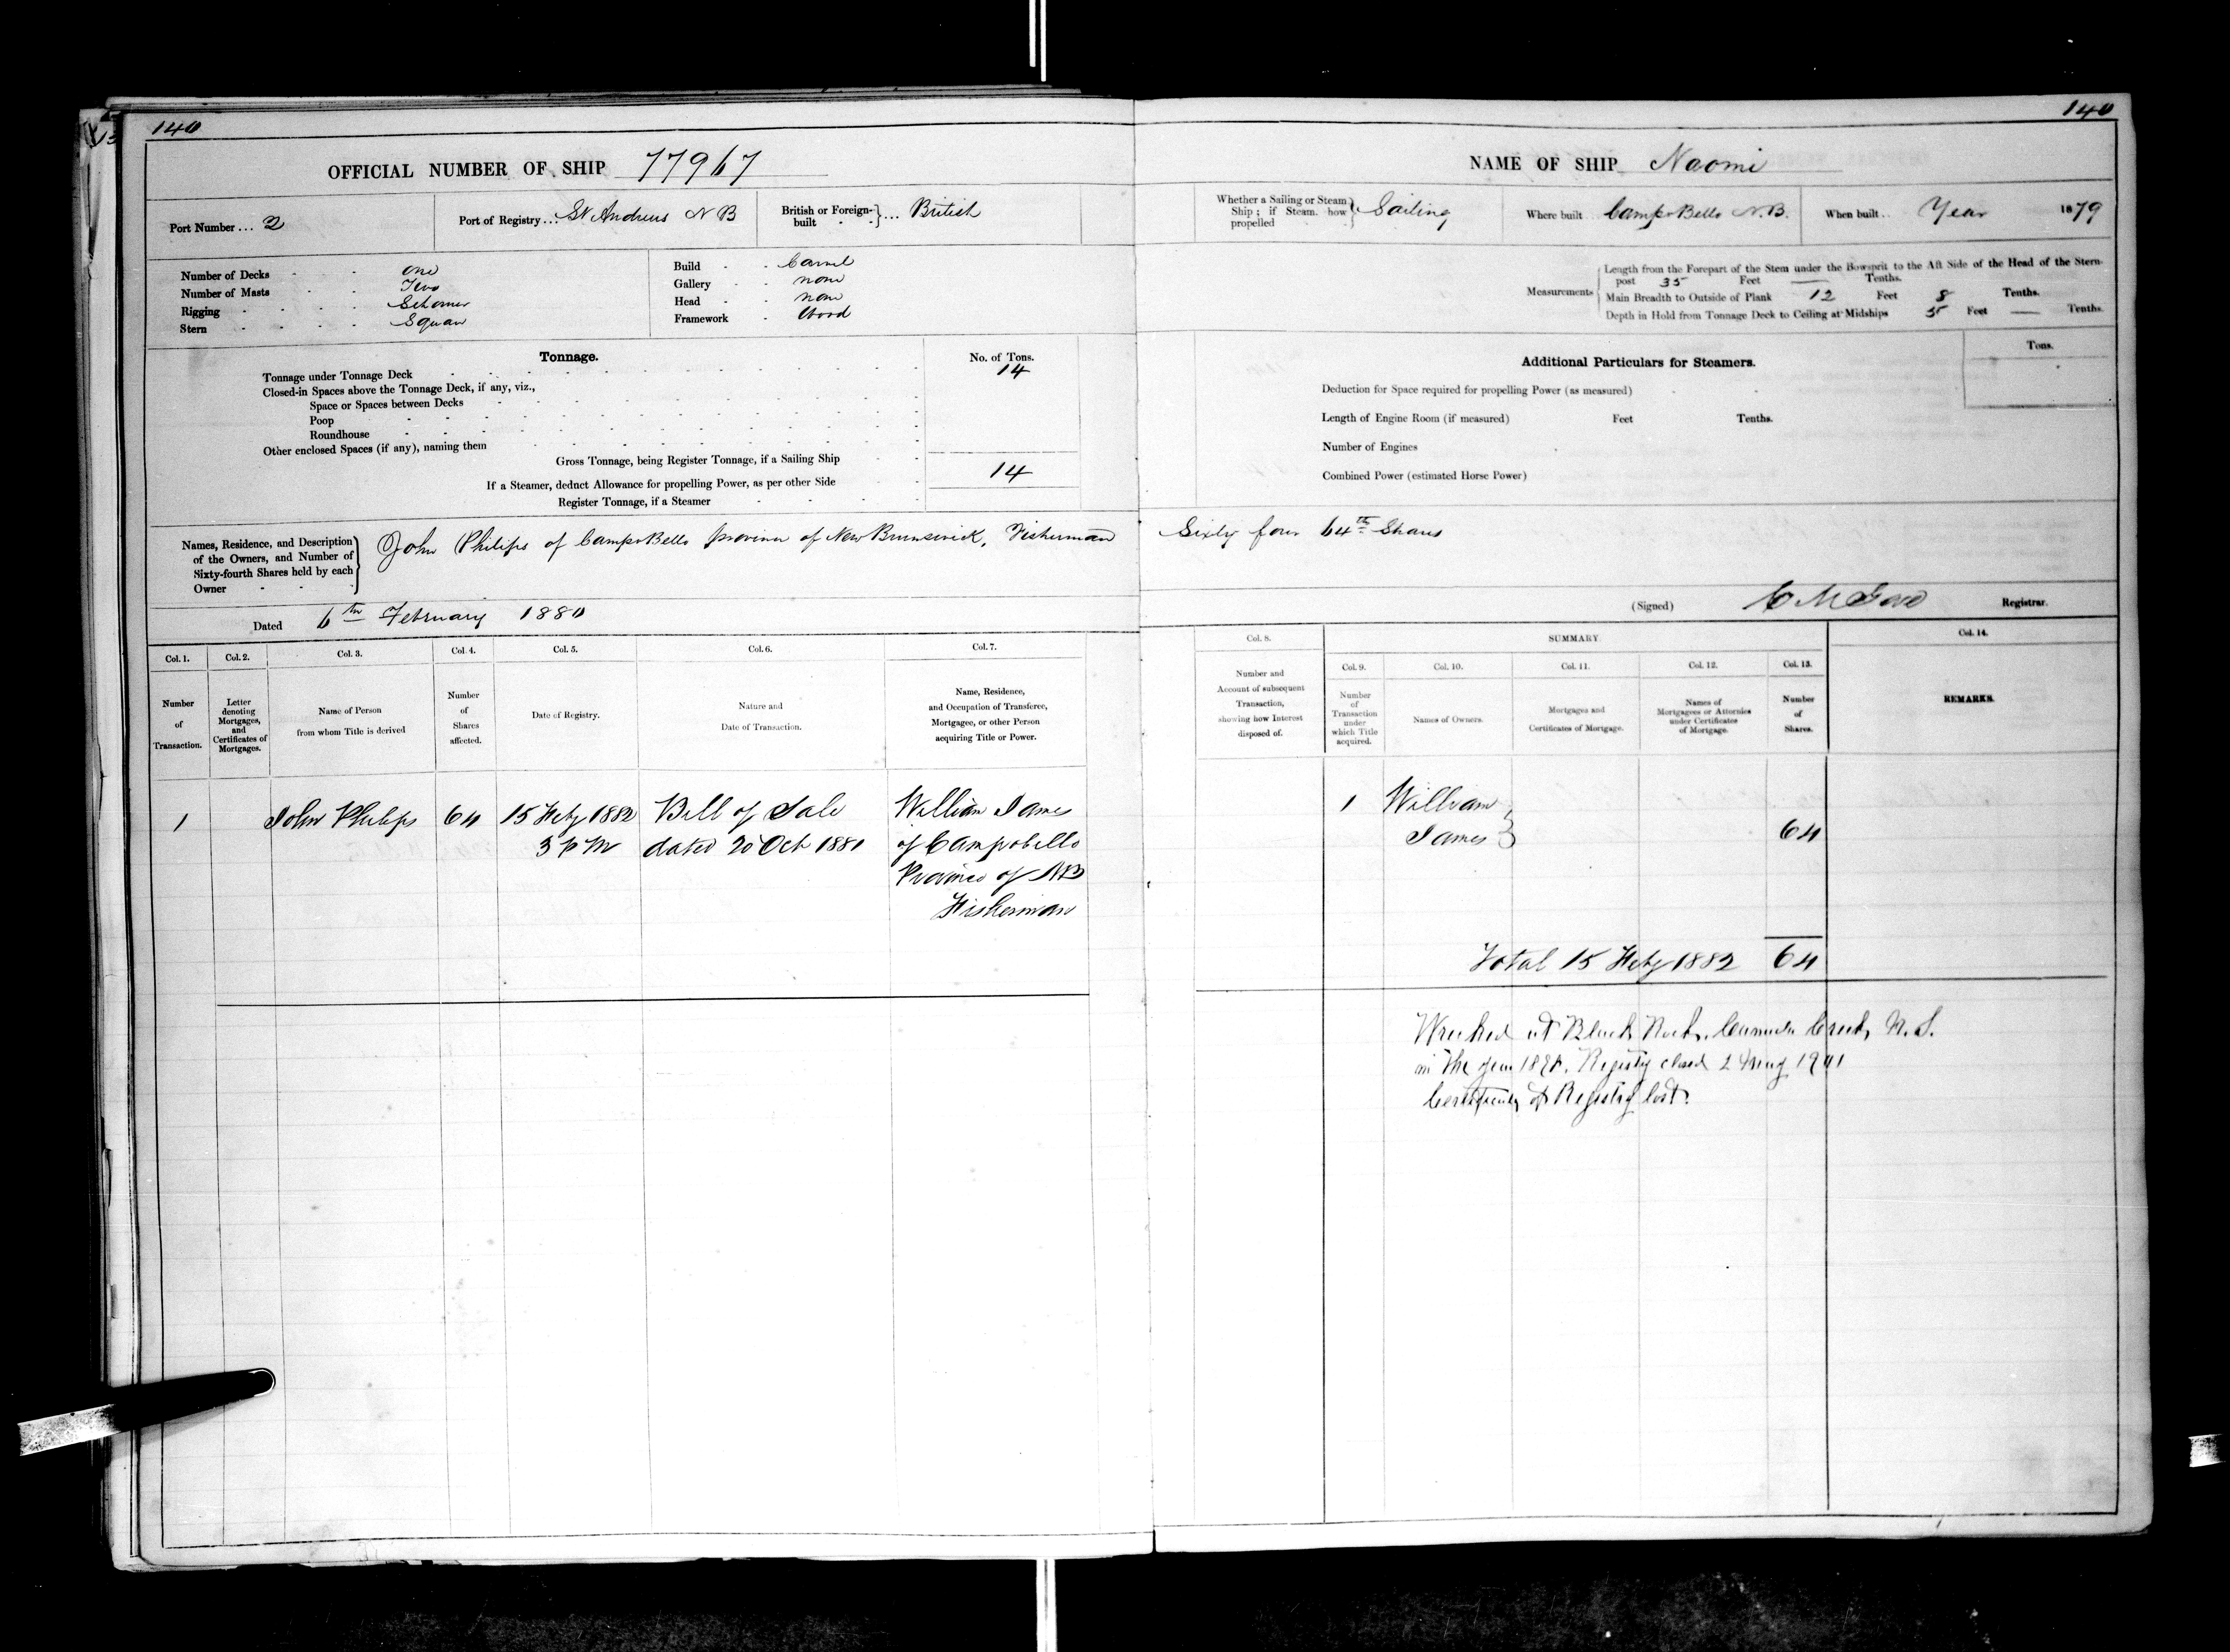 140
OFFICIAL NUMBER OF SHIP 77967
Port Number ... 2
Port of Registry ... St Andrews N B
British or Foreign-built } ... British
Number of Decks - - - One
Number of Masts - - - Two
Rigging - - - - Schoner
Stern - - - - Square
Build - - Carvel
Gallery - - none
Head - - none
Framework - Wood
Tonnage.
No. of Tons.
Tonnage under Tonnage Deck 14
Closed-in Spaces above the Tonnage Deck, if any, viz.,
Space or Spaces between Decks
Poop
Roundhouse
Other enclosed Spaces (if any), naming them
Gross Tonnage, being Register Tonnage, if a Sailing Ship 14
If a Steamer, deduct Allowance for propelling Power, as per other Side
Register Tonnage, if a Steamer
Names, Residence, and Description of the Owners, and Number of Sixty-fourth Shares held by each Owner
John Philips of CampoBello province of New Brunswick, Fisherman
Dated 6th February 1880
Col. 1. Col. 2. Col. 3. Col. 4. Col. 5. Col. 6. Col. 7.
Number of Transaction.
Letter denoting Mortgages, and Certificates of Mortgages.
Name of Person from whom Title is derived
Number of Shares affected.
Date of Registry.
Nature and Date of Transaction.
Name, Residence, and Occupation of Transferee, Mortgagee, or other Person acquiring Title or Power.
1 John Philips 64 15 Feby 1882 Bill of Sale William James
3 P M dated 20 Oct 1881 of Campobello
Province of NB
Fisherman
140
NAME OF SHIP Naomi
Whether a Sailing or Steam Ship; if Steam, how propelled } Sailing
Where built .. CampoBello N.B.
When built .. Year 1879
Measurements
Length from the Forepart of the Stem under the Bowsprit to the Aft Side of the Head of the Stern-
post 35 Feet — Tenths.
Main Breadth to Outside of Plank 12 Feet 8 Tenths.
Depth in Hold from Tonnage Deck to Ceiling at Midships 5 Feet — Tenths.
Additional Particulars for Steamers.
Tons.
Deduction for Space required for propelling Power (as measured)
Length of Engine Room (if measured) Feet Tenths.
Number of Engines
Combined Power (estimated Horse Power)
Sixty four 64th Shares
(Signed) C M Gove Registrar.
Col. 8. SUMMARY. Col. 14.
Col. 9. Col. 10. Col. 11. Col. 12. Col. 13.
Number and Account of subsequent Transaction, showing how Interest disposed of.
Number of Transaction under which Title acquired.
Names of Owners.
Mortgages and Certificates of Mortgage.
Names of Mortgagees or Attornies under Certificates of Mortgage.
Number of Shares.
REMARKS.
1 William
James } 64
Total 15 Feby 1882 64
Wrecked at Black Rock, Creek, N. S.
in the year Registry closed
Certificate of Registry lost.